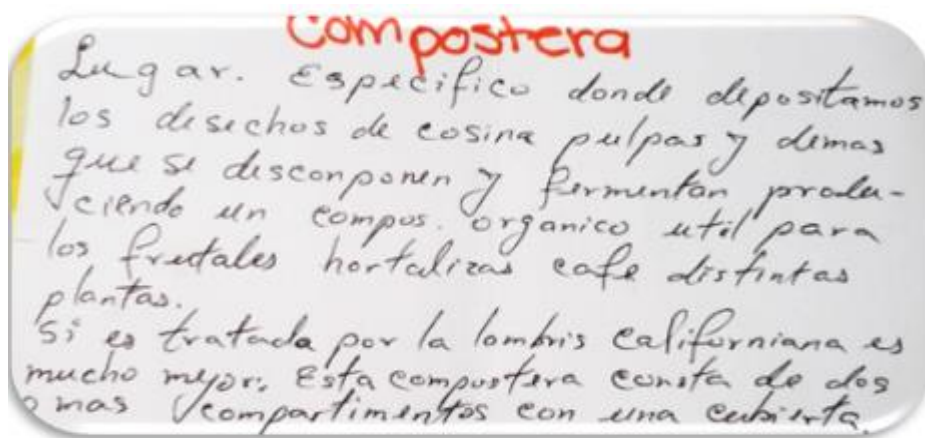 Compostera
Lugar. Especifico donde depositamos
los desechos de cosina pulpas y demas
que se desconponen y fermentan produ-
ciendo un compos. organico util para
los frutales hortalizas cafe distintas
plantas.
Si es tratada por la lombris Californiana es
mucho mejor. Esta compostera consta de dos
o mas compartimentos con una cubierta.